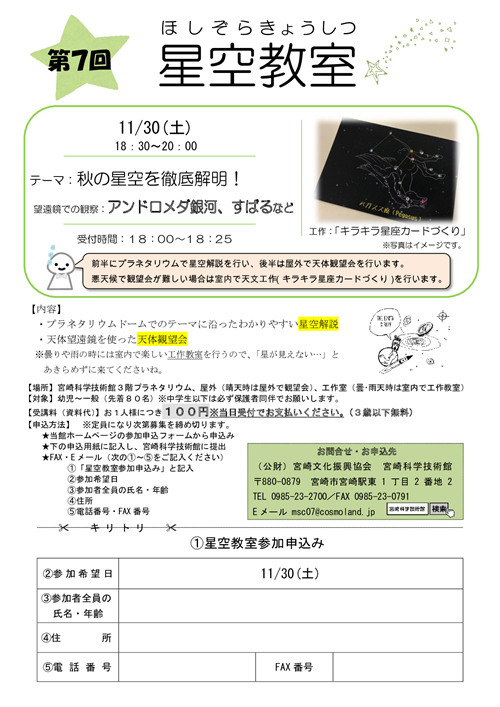 第7回
ほしぞらきょうしつ
星空教室
11/30(土)
18：30～20：00
テーマ：秋の星空を徹底解明！
望遠鏡での観察：アンドロメダ銀河、すばるなど
受付時間：１８：００～１８：２５
ペガスス座(Pegasus)
工作：「キラキラ星座カードづくり」
※写真はイメージです。
前半にプラネタリウムで星空解説を行い、後半は屋外で天体観望会を行います。
悪天候で観望会が難しい場合は室内で天文工作(キラキラ星座カードづくり)を行います。
【内容】
・プラネタリウムドームでのテーマに沿ったわかりやすい星空解説
・天体望遠鏡を使った天体観望会
※曇りや雨の時には室内で楽しい工作教室を行うので、「星が見えない…」と
あきらめずに来てくださいね。
【場所】宮崎科学技術館３階プラネタリウム、屋外（晴天時は屋外で観望会）、工作室（曇･雨天時は室内で工作教室）
【対象】幼児～一般（先着８０名）※中学生以下は必ず保護者同伴でお願いします。
【受講料（資料代）】お１人様につき１００円※当日受付でお支払いください。（３歳以下無料）
【申込方法】　※定員になり次第募集を締め切ります。
★当館ホームページの参加申込フォームから申込み
★下の申込用紙に記入し、宮崎科学技術館に提出
★FAX・Eメール（次の①～⑤をご記入ください）
①「星空教室参加申込み」と記入
②参加希望日
③参加者全員の氏名・年齢
④住所
⑤電話番号・FAX番号
お問合せ・お申込先
（公財）宮崎文化振興協会　宮崎科学技術館
〒880-0879　宮崎市宮崎駅東１丁目２番地２
TEL 0985-23-2700／FAX 0985-23-0791
Eメール msc07@cosmoland.jp
宮崎科学技術館 検索
キリトリ
①星空教室参加申込み
②参加希望日
11/30(土)
③参加者全員の
氏名・年齢
④住　所
⑤電話番号
FAX番号